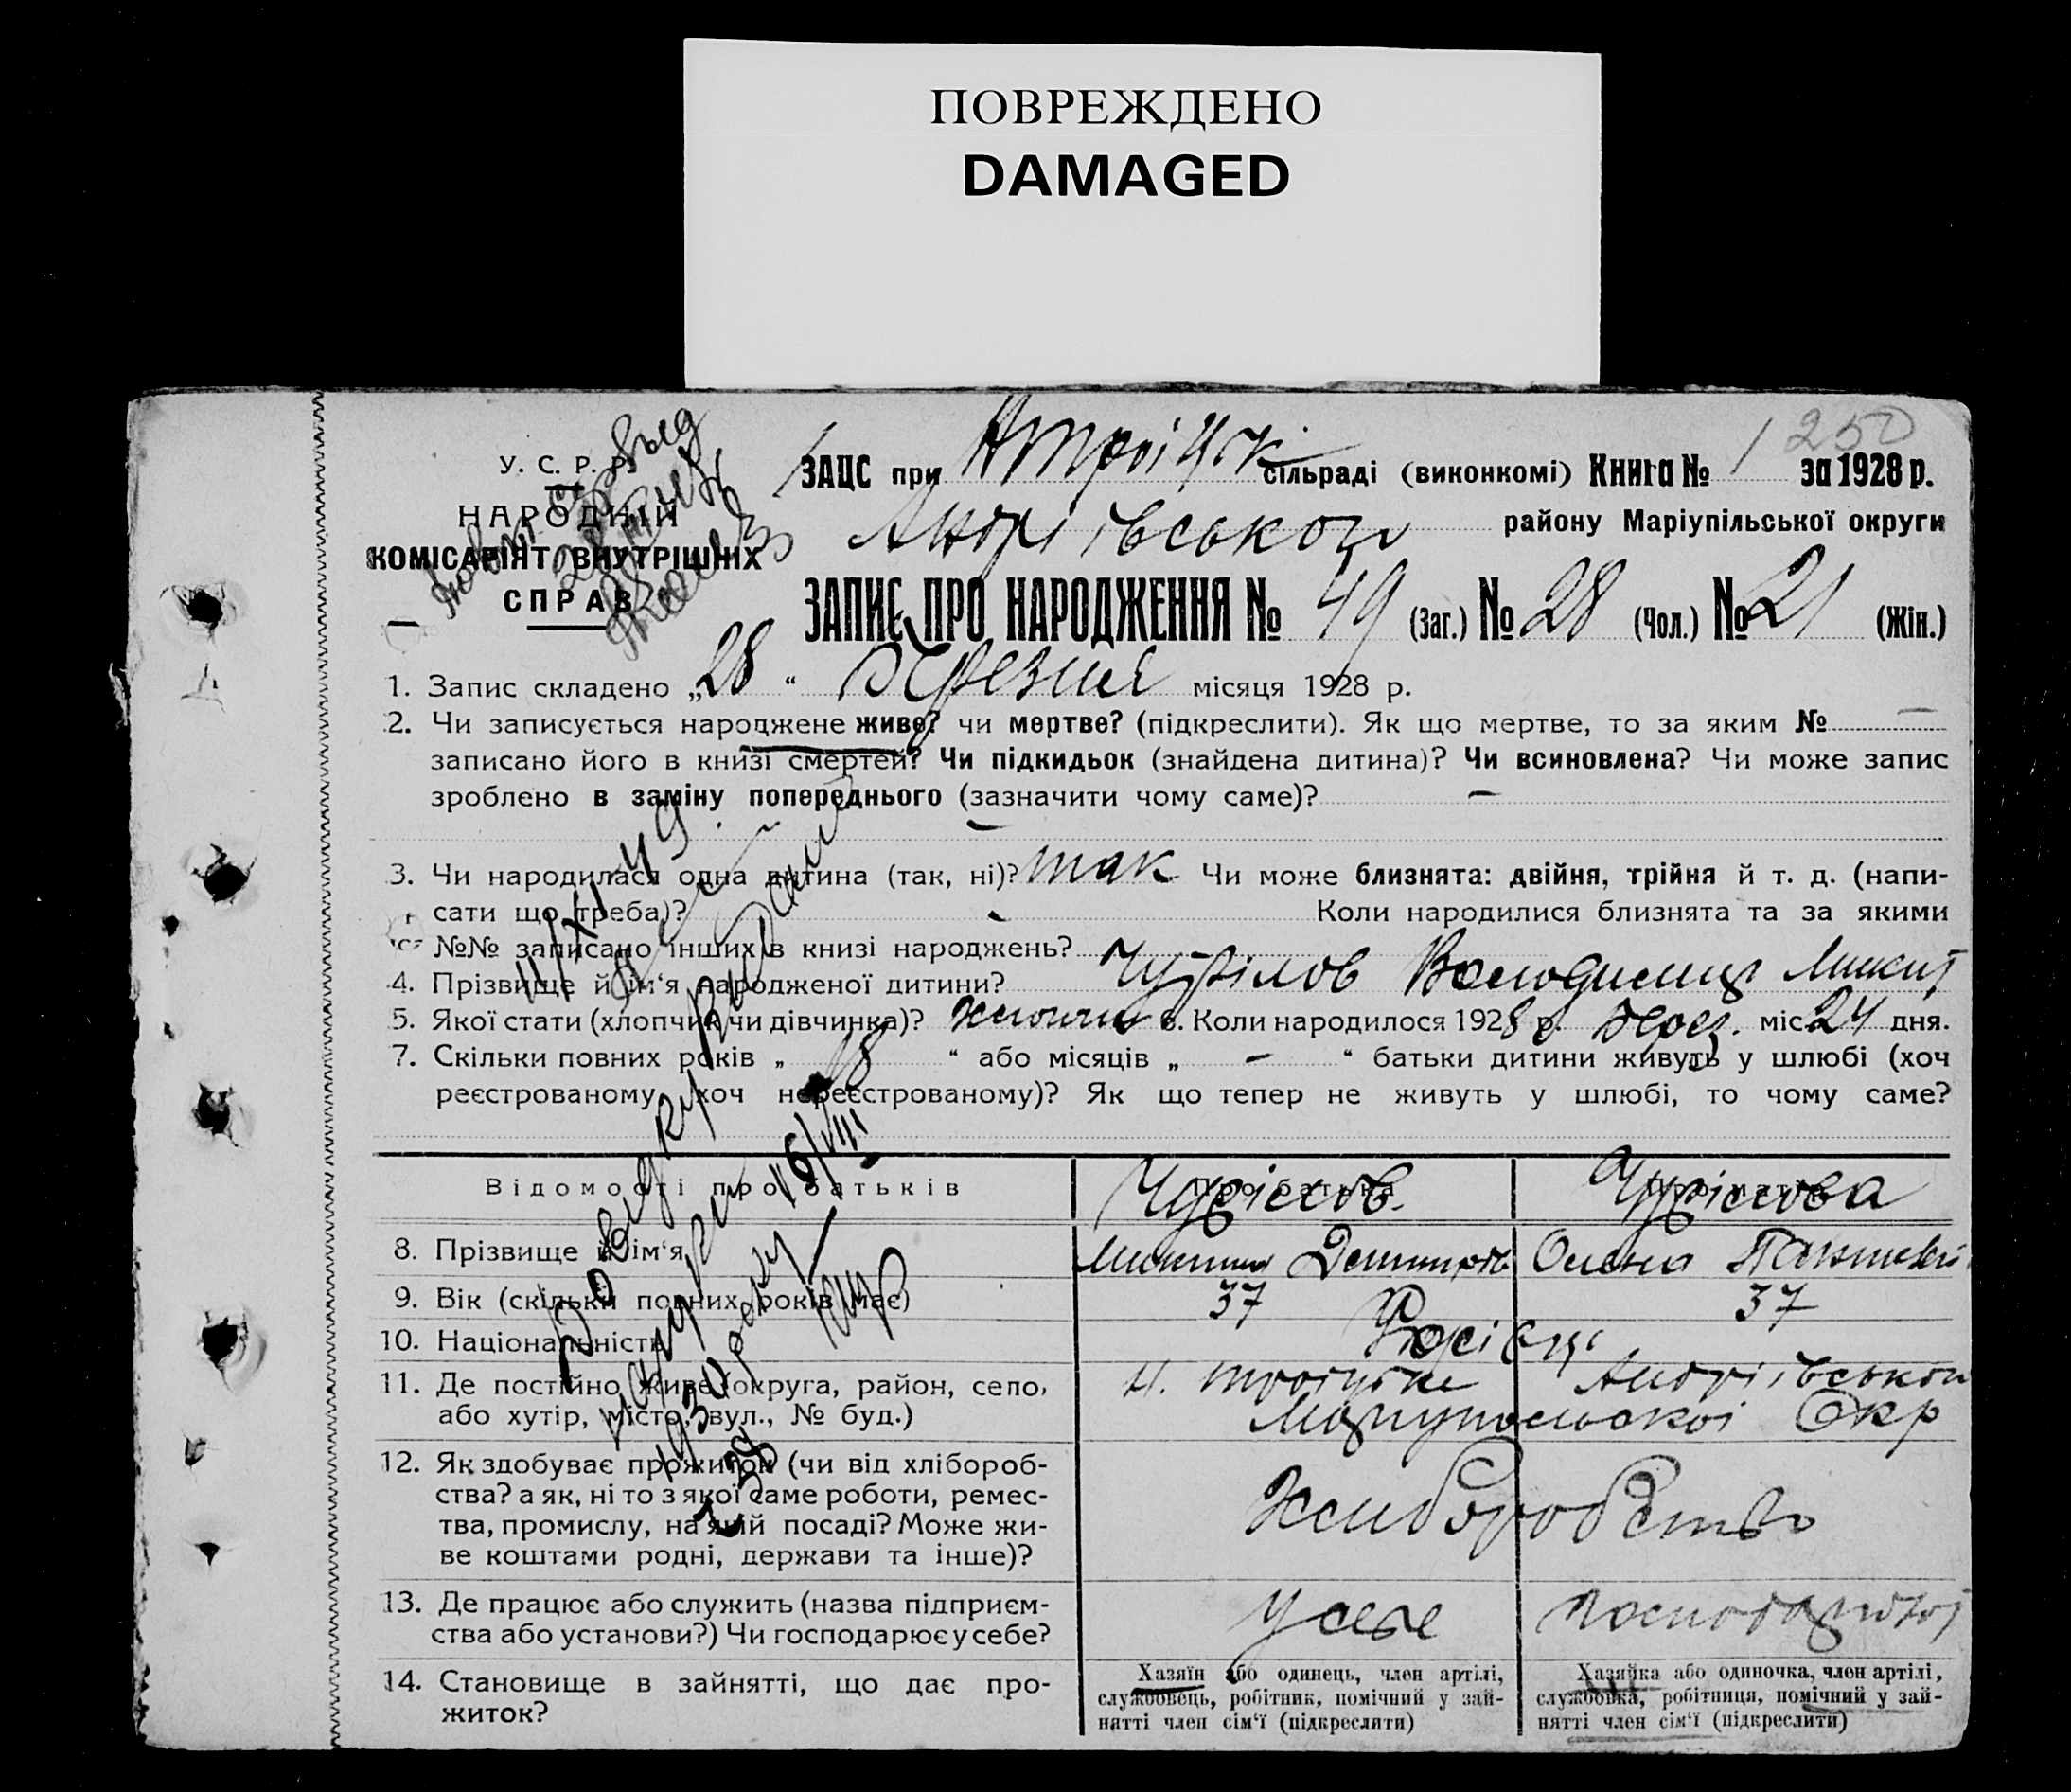 ПОВРЕЖДЕНО
DAMAGED
250
У. С. Р. Р.
НАРОДНІЙ
КОМІСАРІЯТ ВНУТРІШНІХ
СПРАВ
ЗАЦС при Нтроіцьк сільраді (виконкомі) Книга № 1 за 1928 р.
Андріївського району Маріупільської округи
ЗАПИС ПРО НАРОДЖЕННЯ № 49 (Заг.) № 28 (Чол.) № 21 (Жін.)
1. Запис складено „28“ Березня місяця 1928 р.
2. Чи записується народжене живе? чи мертве? (підкреслити). Як що мертве, то за яким №
записано його в книзі смертей? Чи підкидьок (знайдена дитина)? Чи всиновлена? Чи може запис
зроблено в заміну попереднього (зазначити чому саме)? –
3. Чи народилася одна дитина (так, ні)? так Чи може близнята: двійня, трійня й т. д. (напи-
сати що треба)? - Коли народилися близнята та за якими
№№ записано інших в книзі народжень?
4. Прізвище й ім‘я народженої дитини? Чурілов Володимир Микит
5. Якої стати (хлопчик чи дівчинка)? хлопчик 6. Коли народилось 1928 р. берез. міс. 24 дня.
7. Скільки повних років „ 18 “ або місяців „ - “ батьки дитини живуть у шлюбі (хоч
реєстрованому, хоч нереєстрованому)? Як що тепер не живуть у шлюбі, то чому саме?
Відомості про батьків Про батька Про матір
Чурілов. Чурілова
8. Прізвище й ім‘я Микита Олена
9. Вік (скільки повних років має) 37 37
10. Національність Росіяці
11. Де постійно живе (округа, район, село, Н. Троіцьке Андріївського
або хутір, місто, вул., № буд.) Маріупольскоі Окр
12. Як здобуває прожиток (чи від хлібороб-
ства? а як, ні то з якої саме роботи, ремес- Хліборобство
тва, промислу, на якій посаді? Може жи-
ве коштами родні, держави та інше)?
13. Де працює або служить (назва підприєм- У себе
ства або установи?) Чи господарює у себе?
14. Становище в зайнятті, що дає про-
житок?
Хазяїн або одинець, член артілі,
службовець, робітник, помічний у зай-
нятті член сім‘ї (підкреслити)
Хазяйка або одиночка, член артілі,
службовка, робітниця, помічний у зай-
нятті член сім‘ї (підкреслити)
11/XI 49
Довідку видано
16/VIII
1930 року